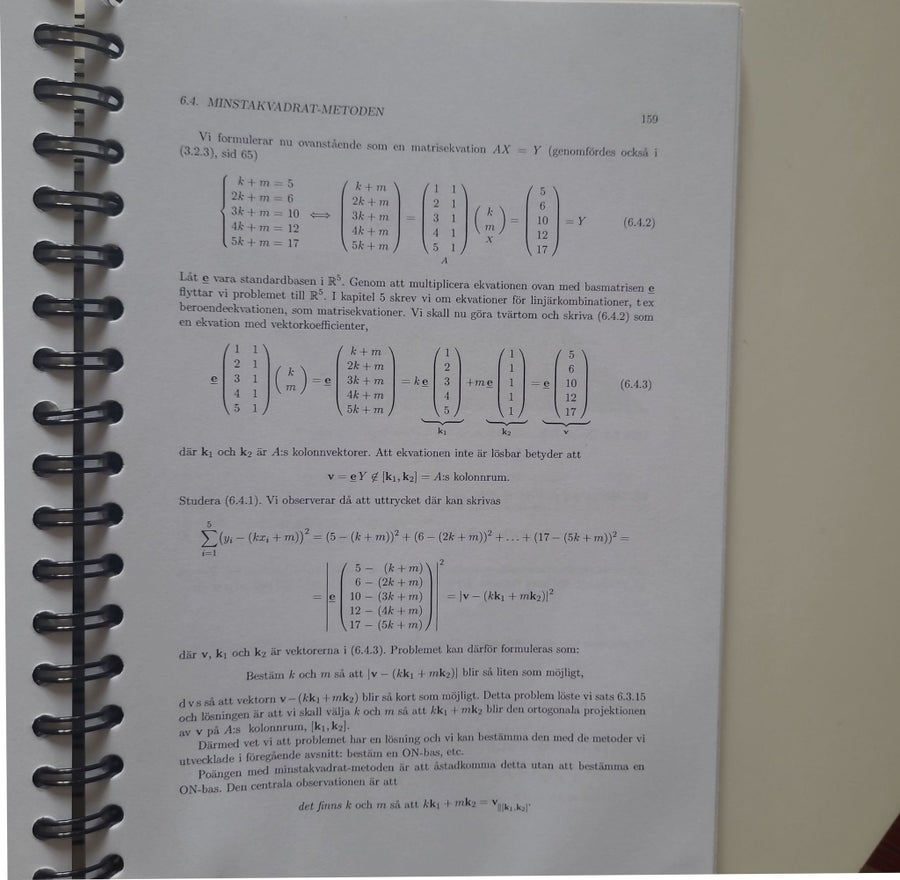 6.4. MINSTAKVADRAT-METODEN 159
Vi formulerar nu ovanstående som en matrisekvation AX = Y (genomfördes också i
(3.2.3), sid 65)
{ k + m = 5
2k + m = 6
3k + m = 10
4k + m = 12
5k + m = 17
⟺
( k + m
2k + m
3k + m
4k + m
5k + m )
=
( 1 1
2 1
3 1
4 1
5 1 )
A
( k
m )
X
=
( 5
6
10
12
17 )
= Y (6.4.2)
Låt e vara standardbasen i ℝ⁵. Genom att multiplicera ekvationen ovan med basmatrisen e
flyttar vi problemet till ℝ⁵. I kapitel 5 skrev vi om ekvationer för linjärkombinationer, t ex
beroendeekvationen, som matrisekvationer. Vi skall nu göra tvärtom och skriva (6.4.2) som
en ekvation med vektorkoefficienter,
e
( 1 1
2 1
3 1
4 1
5 1 )
( k
m )
= e
( k + m
2k + m
3k + m
4k + m
5k + m )
= k e
( 1
2
3
4
5 )
k₁
+m e
( 1
1
1
1
1 )
k₂
= e
( 5
6
10
12
17 )
v
(6.4.3)
där k₁ och k₂ är A:s kolonnvektorer. Att ekvationen inte är lösbar betyder att
v = e Y ∉ [k₁, k₂] = A:s kolonnrum.
Studera (6.4.1). Vi observerar då att uttrycket där kan skrivas
∑_{i=1}^{5} (yᵢ − (kxᵢ + m))² = (5 − (k + m))² + (6 − (2k + m))² + … + (17 − (5k + m))² =
= | e
( 5 − (k + m)
6 − (2k + m)
10 − (3k + m)
12 − (4k + m)
17 − (5k + m) )
|² = |v − (kk₁ + mk₂)|²
där v, k₁ och k₂ är vektorerna i (6.4.3). Problemet kan därför formuleras som:
Bestäm k och m så att |v − (kk₁ + mk₂)| blir så liten som möjligt,
d v s så att vektorn v − (kk₁ + mk₂) blir så kort som möjligt. Detta problem löste vi sats 6.3.15
och lösningen är att vi skall välja k och m så att kk₁ + mk₂ blir den ortogonala projektionen
av v på A:s kolonnrum, [k₁, k₂].
Därmed vet vi att problemet har en lösning och vi kan bestämma den med de metoder vi
utvecklade i föregående avsnitt: bestäm en ON-bas, etc.
Poängen med minstakvadrat-metoden är att åstadkomma detta utan att bestämma en
ON-bas. Den centrala observationen är att
det finns k och m så att kk₁ + mk₂ = v_{||[k₁,k₂]}.